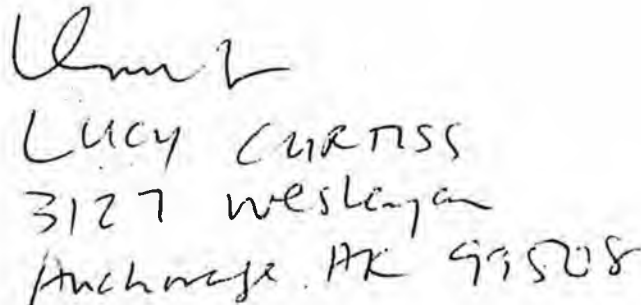 Lucy CURTISS
3127 Wesleyan
Anchorage AK 99508